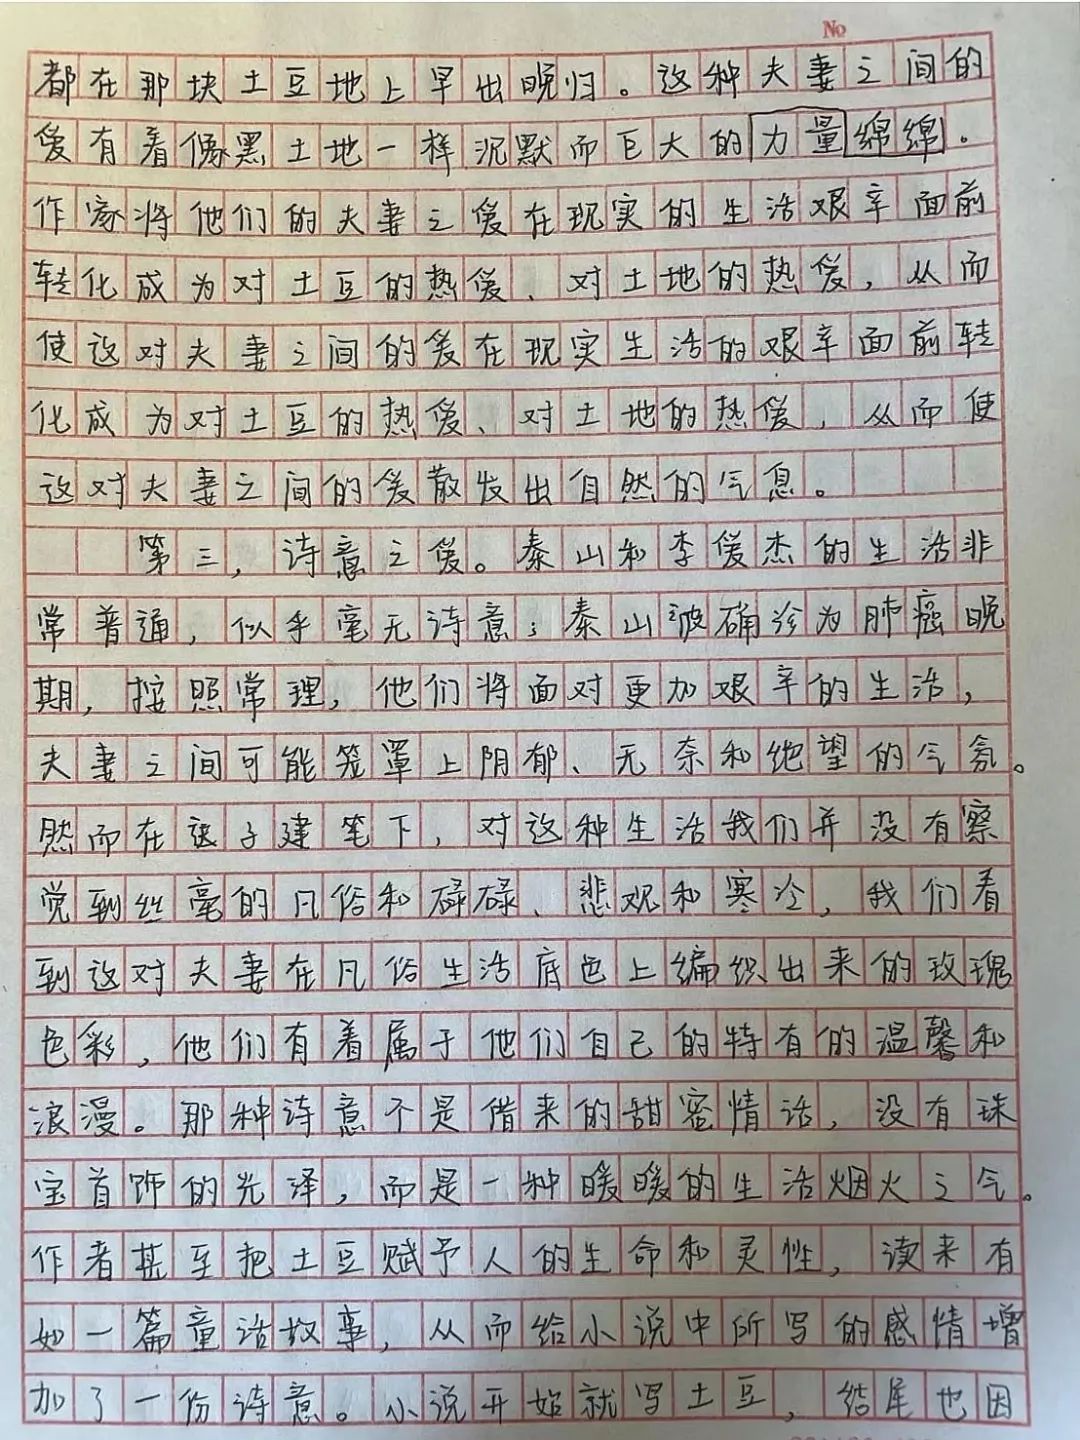 No
都在那块土豆地上早出晚归。这种夫妻之间的
爱有着像黑土地一样沉默而巨大的力量绵绵。
作家将他们的夫妻之爱在现实的生活艰辛面前
转化成为对土豆的热爱、对土地的热爱,从而
使这对夫妻之间的爱在现实生活的艰辛面前转
化成为对土豆的热爱、对土地的热爱,从而使
这对夫妻之间的爱散发出自然的气息。
第三,诗意之爱。秦山和李爱杰的生活非
常普通,似乎毫无诗意;秦山被确诊为肺癌晚
期,按照常理,他们将面对更加艰辛的生活,
夫妻之间可能笼罩上阴郁、无奈和绝望的气氛。
然而在迟子建笔下,对这种生活我们并没有察
觉到丝毫的凡俗和碌碌、悲观和寒冷,我们看
到这对夫妻在凡俗生活底色上编织出来的玫瑰
色彩,他们有着属于他们自己的特有的温馨和
浪漫。那种诗意不是借来的甜蜜情话,没有珠
宝首饰的光泽,而是一种暖暖的生活烟火之气。
作者甚至把土豆赋予人的生命和灵性,读来有
如一篇童话故事,从而给小说中所写的感情增
加了一份诗意。小说开始就写土豆,结尾也因